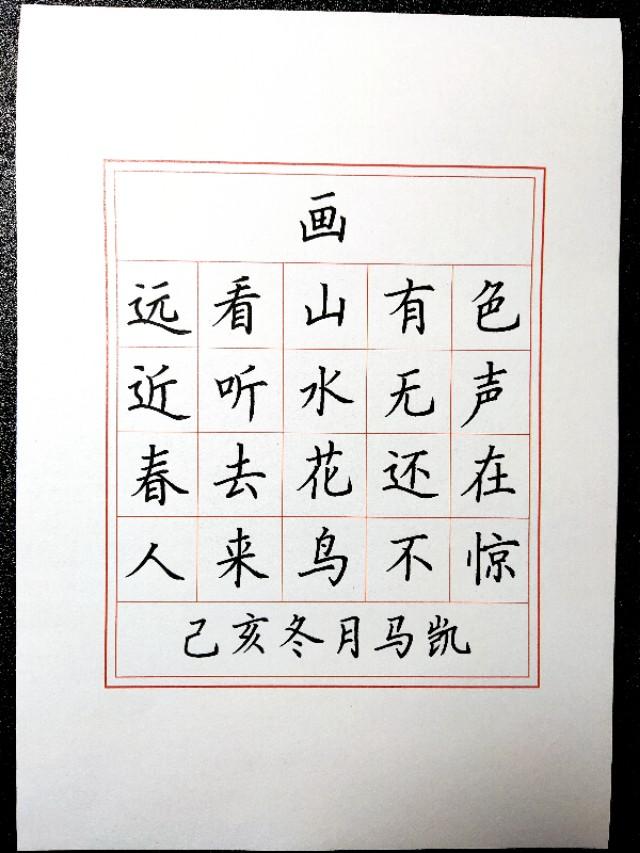 画
远看山有色
近听水无声
春去花还在
人来鸟不惊
己亥冬月马凯